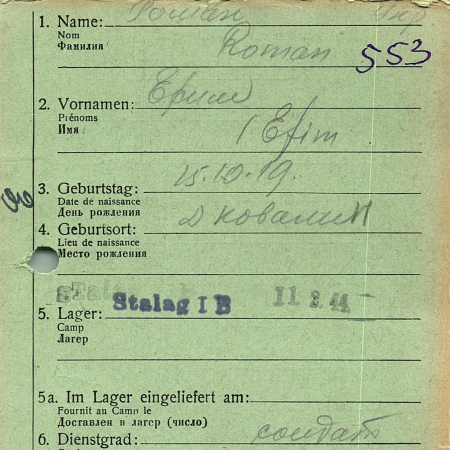 Роман
1. Name:
Nom
Фамилия
Roman
553
2. Vornamen: Ефим
Prénoms
Имя
Efim
3. Geburtstag: 15.10.19.
Date de naissance
День рождения
4. Geburtsort:
Lieu de naissance
Место рождения
Stalag I B
5. Lager:
Camp
Лагер
5a. Im Lager eingeliefert am:
Fournit au Camp le
Доставлен в лагер (число)
6. Dienstgrad: солдат